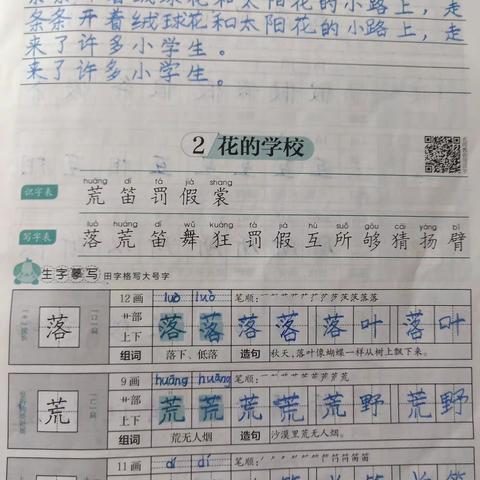 条条开着绒球花和太阳花的小路上，走
条条开着绒球花和太阳花的小路上，走
来了许多小学生。
来了许多小学生。
2 花的学校
huāng dí fá jià shang
识字表 荒 笛 罚 假 裳
luò huāng dí wǔ kuáng fá jià hù suǒ gòu cāi yáng bì
写字表 落 荒 笛 舞 狂 罚 假 互 所 够 猜 扬 臂
生字摹写 田字格写大号字
落 12画 luò luò 笔顺：
艹部
上下 落 落 落 落 落 叶 落 叶
组词 落下、低落 造句 秋天，落叶像蝴蝶一样从树上飘下来。
荒 9画 huāng huāng 笔顺：
艹部
上下 荒 荒 荒 荒 荒 野 荒 野
组词 荒无人烟 造句 沙漠里荒无人烟。
11画 dí dí 笔顺：